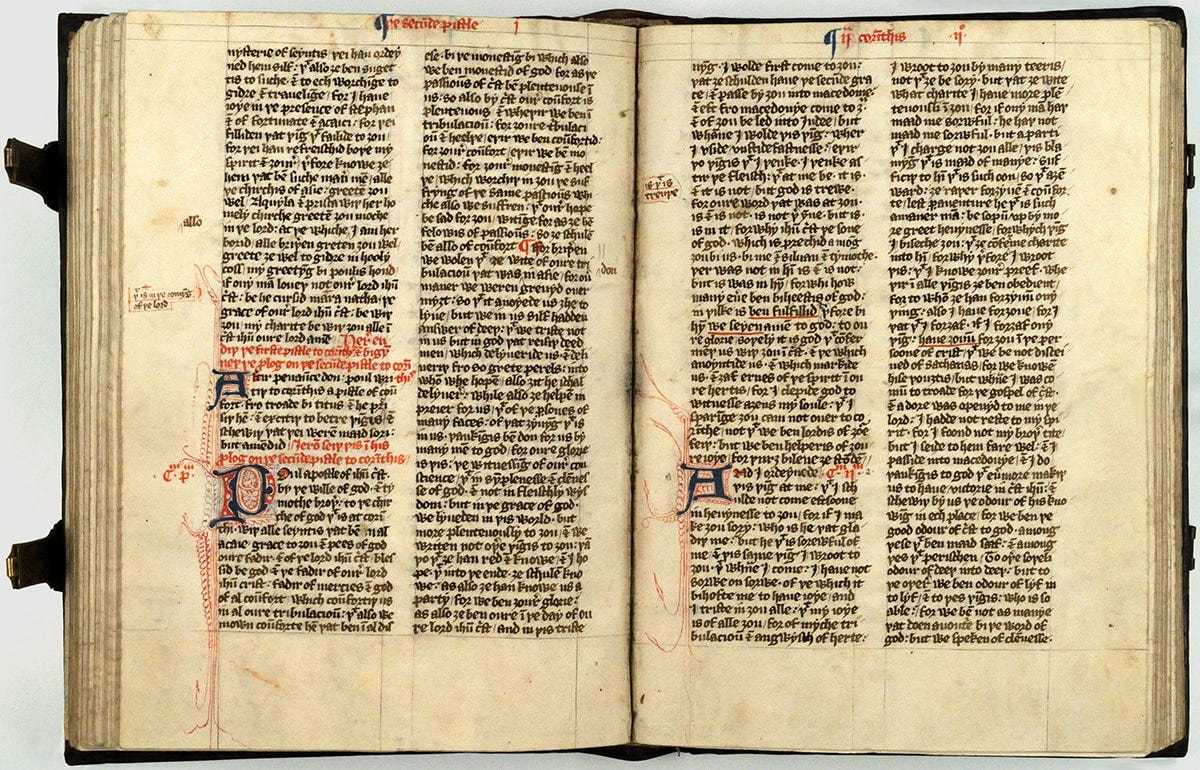 þe secūde pistle i
mysterie of seyntis þei han ordey
ned hem silf: þͭ also ȝe ben suget
tis to suche, ⁊ to ech worchige to
gidre ⁊ traueilige, for I haue
ioye in þe presence of stephan
⁊ of fortunate ⁊ acaici: for þei
filliden þat þīg þͭ failide to ȝou:
for þei han refreischid boþe my
spirit ⁊ ȝour, þͤfore knowe ȝe
hem þat be suche maner mē, alle
þe chirchis of asie: greetē ȝou
wel, Aquyla ⁊ prisca wiþ her ho
mely chirche greetē ȝou moche
in þe lord: at þe whiche, I am her
borid, alle briþeren greten ȝou wel,
greete ȝe wel to gidre in hooly
coss, my greetyng bi poulis hond,
if ony mā loueþ not our lord ihū
cͥst: be he cursid mara natha, þe
grace of oure lord ihū cͥst: be wiþ
ȝou, my charite be wiþ ȝou alle ī
cͥst ihū oure lord amē Here en
diþ þe firste pistle to corīth ⁊ bigy
neþ þe plog on þe secūde pistle to corī
this
Aftir penaunce don: poul wri
tiþ to corīthis a pistle of cou
fort, fro troade bi titus: ⁊ he prei
siþ hē: ⁊ excitiþ to betre þigis: ⁊
schewiþ þat þei werē maad sori:
but amēdid Ierō seiþ þis ī his
plog on þe secūde pistle to corīthis
Cᵐ pᵐ
Poul apostle of ihū cͥst:
by þe wille of god: ⁊ ty
mothe broþer: to þe chir
che of god þͭ is at corī
thi: wiþ alle seyntis þat bē ī al
acaie, grace to ȝou: ⁊ pees of god
oure fadir: ⁊ of þe lord ihū cͥst, bles
sid be god: ⁊ þe fadir of our lord
ihū crist: fadir of mercies ⁊ god
of al coūfort, which coūfortiþ us
in al oure tribulacioū: þͭ also we
mown coūforte hē þat ben ī al dis
also
þͭ is ī þe comīg
of þe lord
ese, bi þe monestīg bi which also
we ben monestid of god, for as þe
passiouns of cͥst bē plenteuouse ī
us: so also by cͥst our coūfort is
plenteuous, ⁊ wheþir we ben ī
tribulacioū: for ȝoure tribulaci
oū ⁊ heelþe, eþir we ben coūfortid:
for ȝour coūfort, eþir we bē mo
nestid: for ȝour monestīg ⁊ heel
þe, which worchiþ in ȝou þe suf
fryng of þe same passiouns whi
che also we suffren: þͭ our hope
be sad for ȝou, witīge, for as ȝe bē
felowis of passiouns: so ȝe schulē
bē also of coūfort for briþerē
we wolen þͭ ȝe wite of oure tri
bulacioū þat was in asie, for ouer
maner we weren greuyd ouer
myȝt: so þͭ it anoyede us ȝhe to
lyue, but we in us silf hadden
answer of deeþ: þͭ we triste not
in us but in god þat reisiþ deed
men, which delyuerde us: ⁊ deli
ueriþ fro so grete perels: into
who whe hope, also ȝit he schal
delyuer, while also ȝe helpe in
preier for us, þͭ of þe psones of
many faces: of þat ȝyuyg þͭ is
in us, þankigis bē don for us by
many mē to god, for oure glorie
is þis: þe witnessig of our con
sciēce, þͭ in symplenesse ⁊ clenes
se of god: ⁊ not in fleischly wys
dom: but in þe grace of god:
we lyueden in þis world, but
more plenteuously to ȝou, ⁊ we
writen not oþe þīgis to ȝou: þā
þo þͭ ȝe han red ⁊ knowe, ⁊ I ho
pe, þͭ into þe ende, ȝe schule kno
we, as also ȝe han knowe us a
party, for we ben ȝour glorie:
as also ȝe ben oure ī þe day of ou
re lord ihū cͥst, and in þis triste
don
ii corīthis ii
nyg, I wolde first come to ȝou:
þat ȝe schulden haue þe secūde gra
ce, ⁊ passe by ȝou into macedonie:
⁊ eft fro macedonye come to ȝ:
⁊ of ȝou be led into Iudee, but
whāne I wolde þis þīg: wheþ
I vside vnstidefastnesse, eþir
þo þīgis þͭ I þenke, I þenke as
tir þe fleisch: þͭ at me be, it is,
⁊ it is not, but god is trewe,
for oure word þat was at ȝou:
is ⁊ is not, is not þͭ īne, but is,
is in it, forwhy ihū cͥst þe sone
of god, which is prechid amōg
ȝou bi us, bi me ⁊ siluan ⁊ tymothe:
þer was not in hī is ⁊ is not:
but was in hȳ, for whi how
many eue ben biheestis of god:
in þilke is ben fulfillid, þͤfore bi
hȳ we seyen amē to god: to ou
re glorie, soþely it is god þͭ cōfer
meþ us wiþ ȝou ī cͥst: ⁊ þe which
anoyntide us, ⁊ which markide
us: ⁊ ȝaf ernes of þe spirit ī ou
re hertis, for I clepide god to
witnesse aȝens my soule: þͭ I
sparīge ȝou cam not ouer to co
rīthe, not þͭ we ben lordis of ȝour
feiþ: but we ben helperis of ȝour
ioye, for þurȝ bileue ȝe stōdē
Cᵐ iiᵐ
And I ordeynede
þis þīg at me: þͭ I sch
ulde not come eftsoone
in heuynesse to ȝou, for if I ma
ke ȝou sory: who is he þat gla
diþ me: but he þͭ is sorewful of
me, ⁊ þis same þīg I wroot to
ȝou, þͭ whāne I come: I haue not
sorwe on sorwe, of þe which it
bihofte me to haue ioye, and
I triste in ȝou alle: þͭ my ioye
is of alle ȝou, for of myche tri
bulacioū ⁊ angwysch of herte:
is þͭ is
trewþe
I wroot to ȝou by many teeris,
not þͭ ȝe be sory, but þat ȝe wite
what charite I haue more plē
teuously ī ȝou, for if ony mā haþ
maad me sorwful: he haþ not
maad me sorwful, but a parti
þͭ I charge not ȝou alle, þis bla
myng þͭ is maad of manye: suf
ficiþ to hī þͭ is such oon, so þͭ aȝē
ward: ȝe raþer forȝyue ⁊ coūfor
te, lest pauenture he þͭ is such
a maner mā: be sopū up by mo
re greet heuynesse, for which þīg
I biseche ȝou: þͭ ȝe cōferme charite
into hī, forwhy þͤfore I wroot
þis: þͭ I knowe ȝour preef, whe
þir ī alle þīgis ȝe ben obedient,
for to whō ȝe han forȝyuū ony
þīng: also I haue forȝoue, for I
þat þͭ I forȝaf, if I forȝaf ony
þīg: haue ȝouū for ȝou ī þe per
soone of crist: þͭ we be not dissei
ued of sathanas, for we knowē
hise þouȝtis, but whāe I was co
mū to troade for þe gospel of cͥst,
⁊ a dore was openyd to me in þe
lord: I hadde not reste to my spi
rit, for I foond not my broþ tite:
but I seide to hem fare wel, ⁊ I
passide into macedonye, ⁊ I do
þankīgis to god þͭ eūmore makiþ
us to haue victorie in cͥst ihū: ⁊
schewiþ by us þe odour of his kno
wīg in ech place, for we ben þe
good odour of cͥst to god, among
þese þͭ ben maad saaf, ⁊ among
þes þͭ perischen, To oþe soþeli
odour of deeþ into deeþ: but to
þe oþeͬ we ben odour of lyf in
to lyf, ⁊ to þes þīgis: who is so
able: for we be not as manye
þat doen auoutre bi þe word of
god: but we speken of clēnesse,